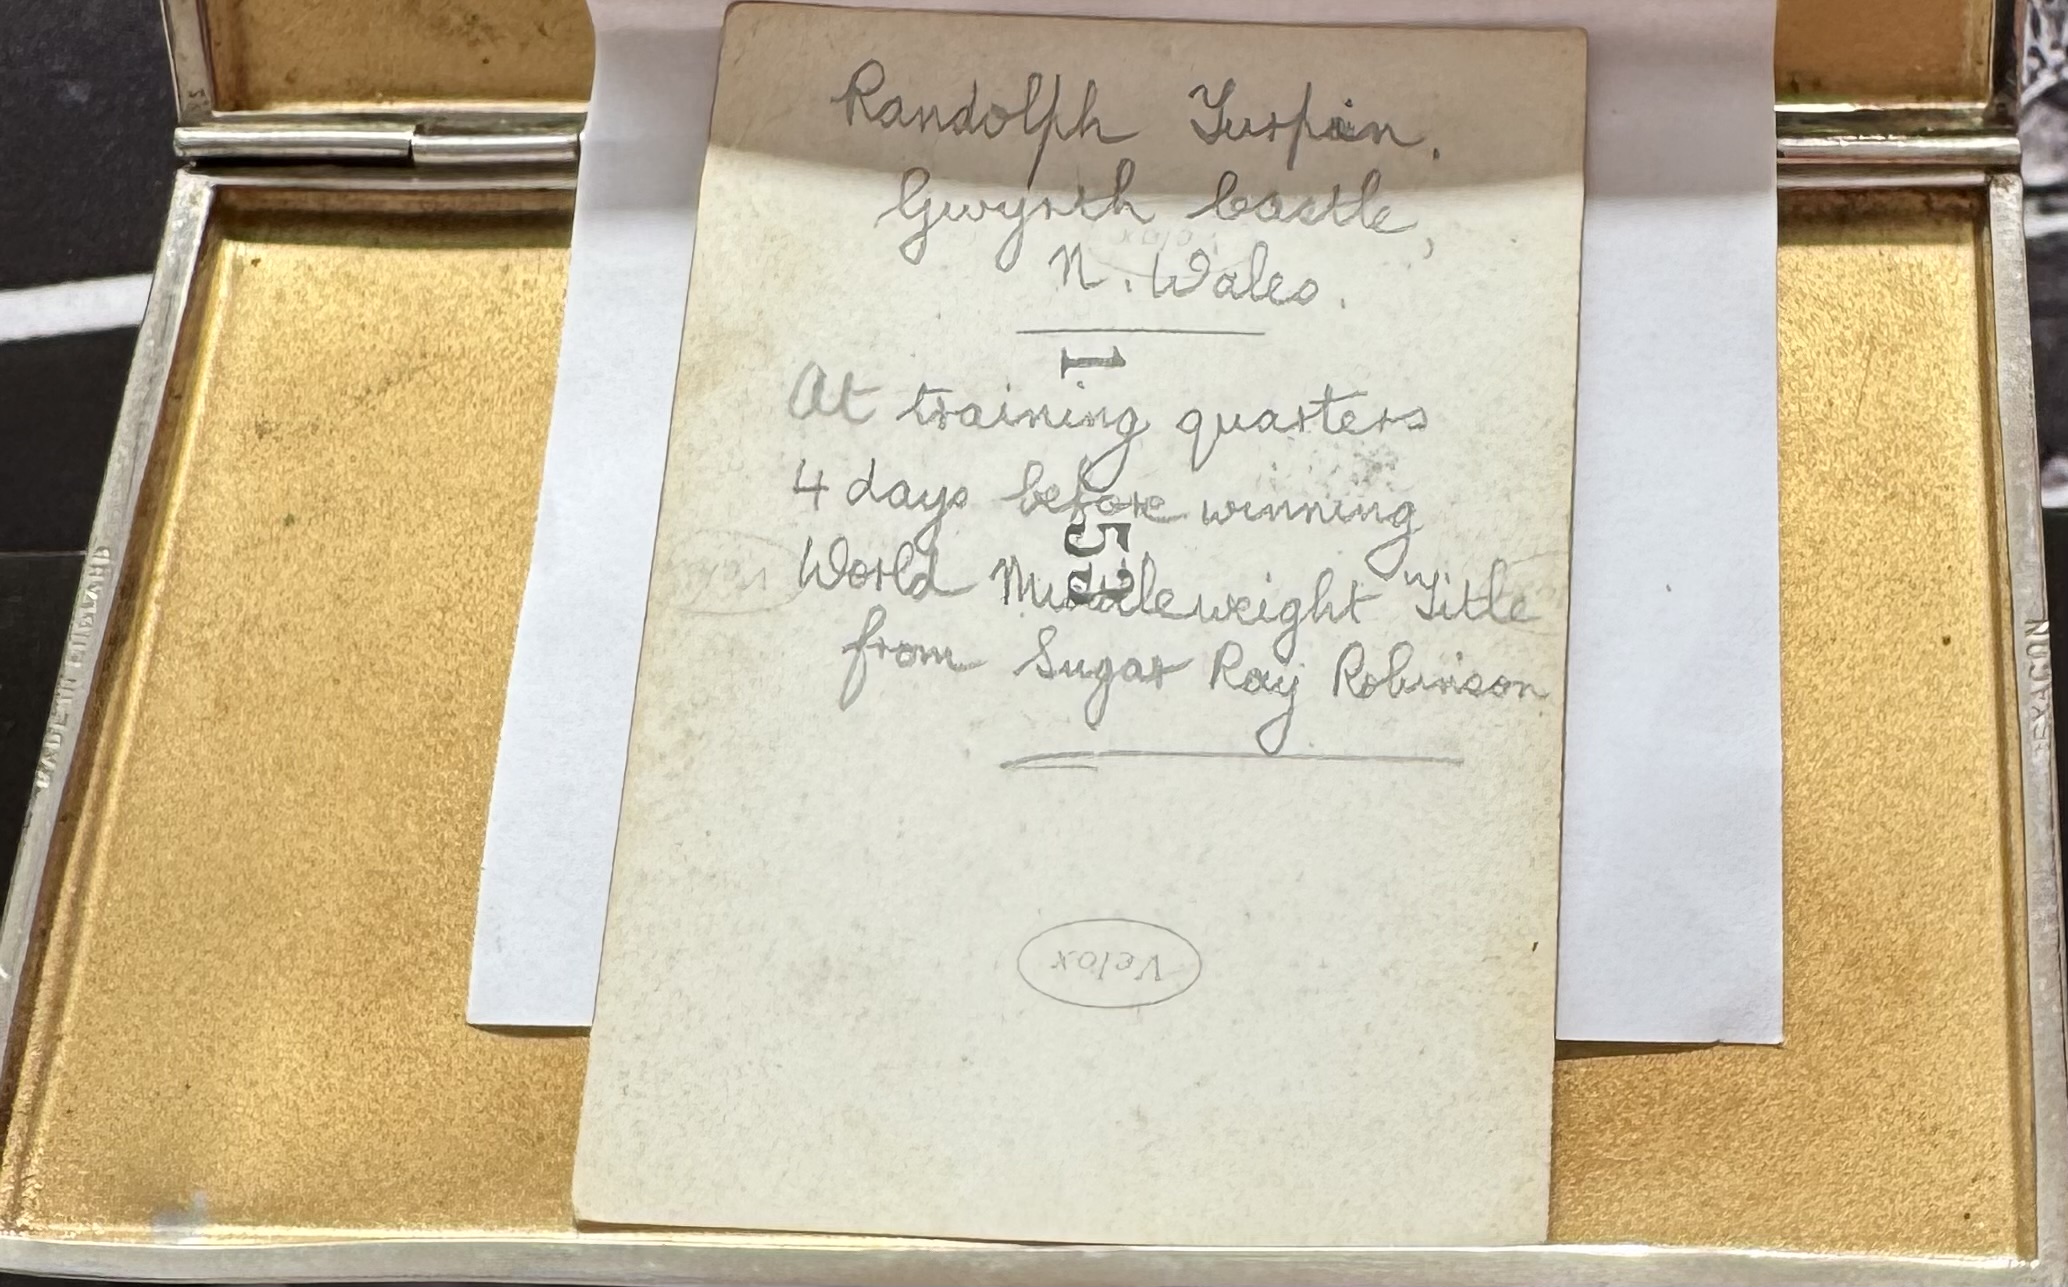 Randolph Turpin,
Gwyrch Castle,
N. Wales.
1
At training quarters
4 days before winning
World Middleweight Title
from Sugar Ray Robinson
Velox
MADE IN ENGLAND